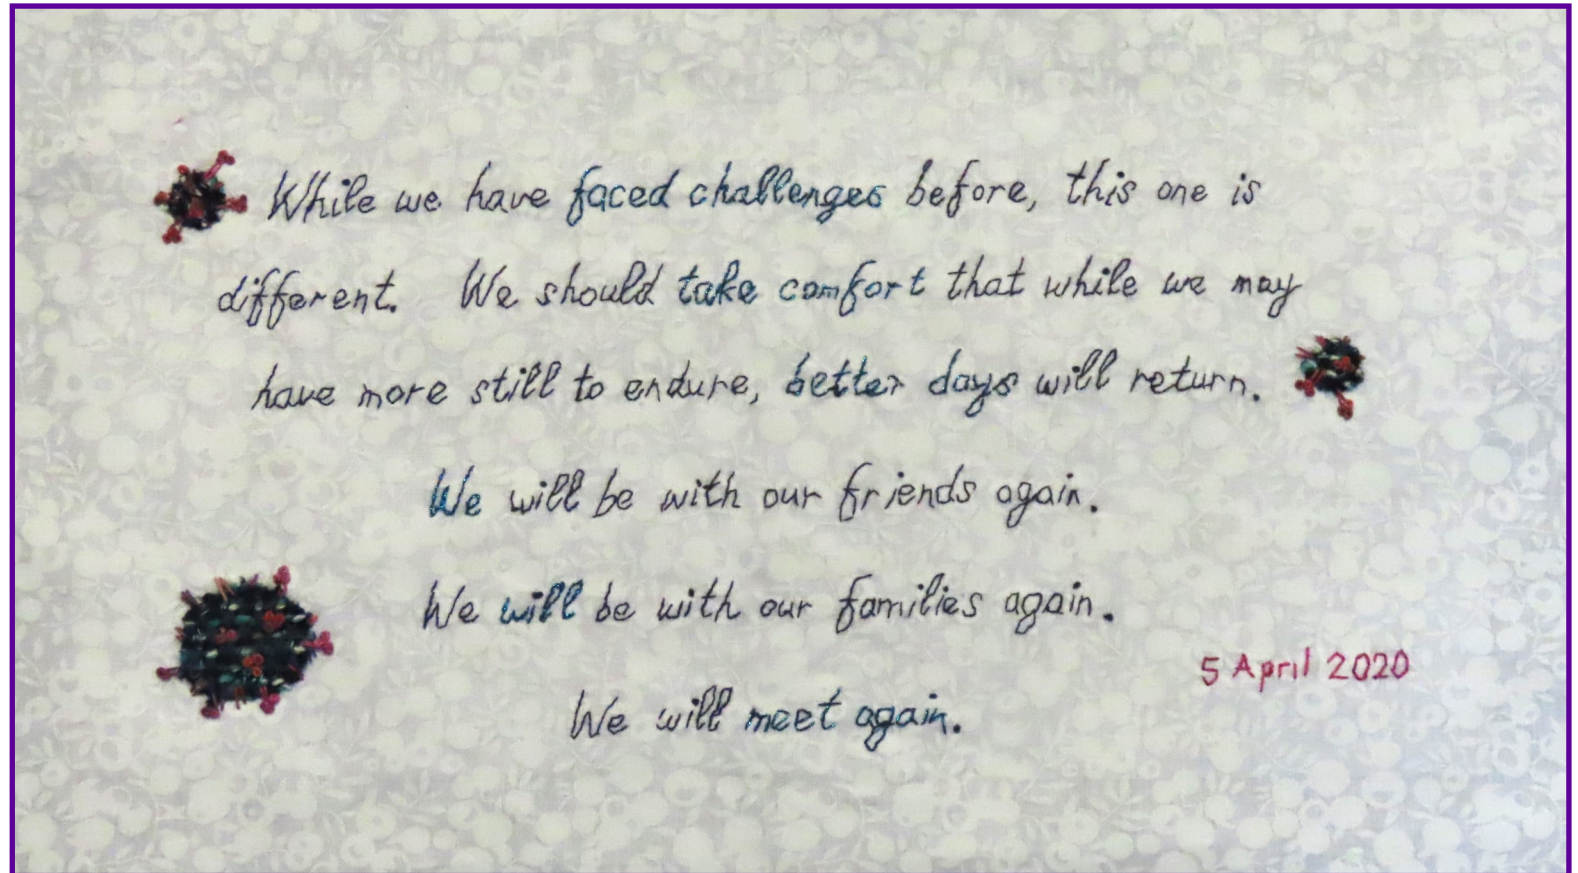 While we have faced challenges before, this one is
different. We should take comfort that while we may
have more still to endure, better days will return.
We will be with our friends again.
We will be with our families again.
5 April 2020
We will meet again.